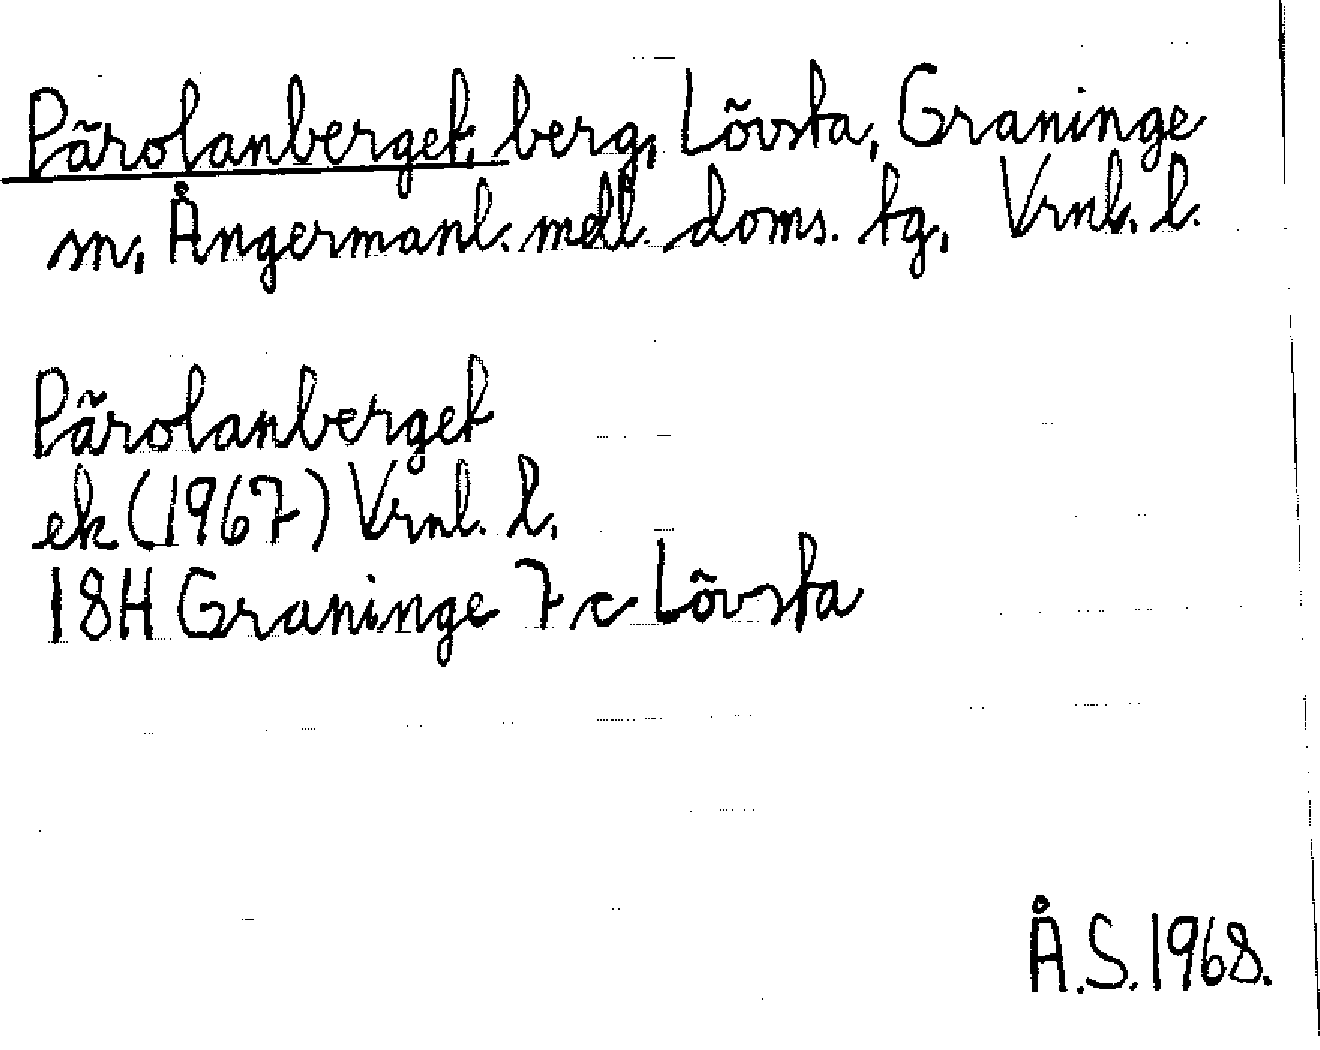 Pärolanberget, berg, Lövsta, Graninge
sn, Ångermanl. mell. doms. tg, Vrnl. l.
Pärolanberget
ek (1967) Vrnl. l.
18H Graninge 7c Lövsta
Å.S. 1968.